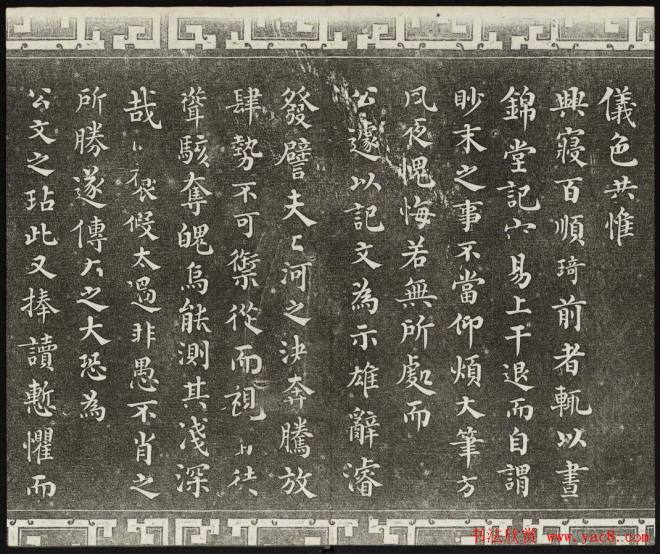 儀色共惟
興寢百順琦前者輒以晝
錦堂記易上干退而自謂
眇末之事不當仰煩大筆方
夙夜愧悔若無所處而
公遽以記文為示雄辭濬
發譬夫河之決奔騰放
肆勢不可禦從而視徒
聳駭奪魄烏能測其淺深
哉褒假太過非愚不肖之
所勝遂傳之大恐為
公文之玷此又捧讀慙懼而
书法欣赏
www.yac8.com